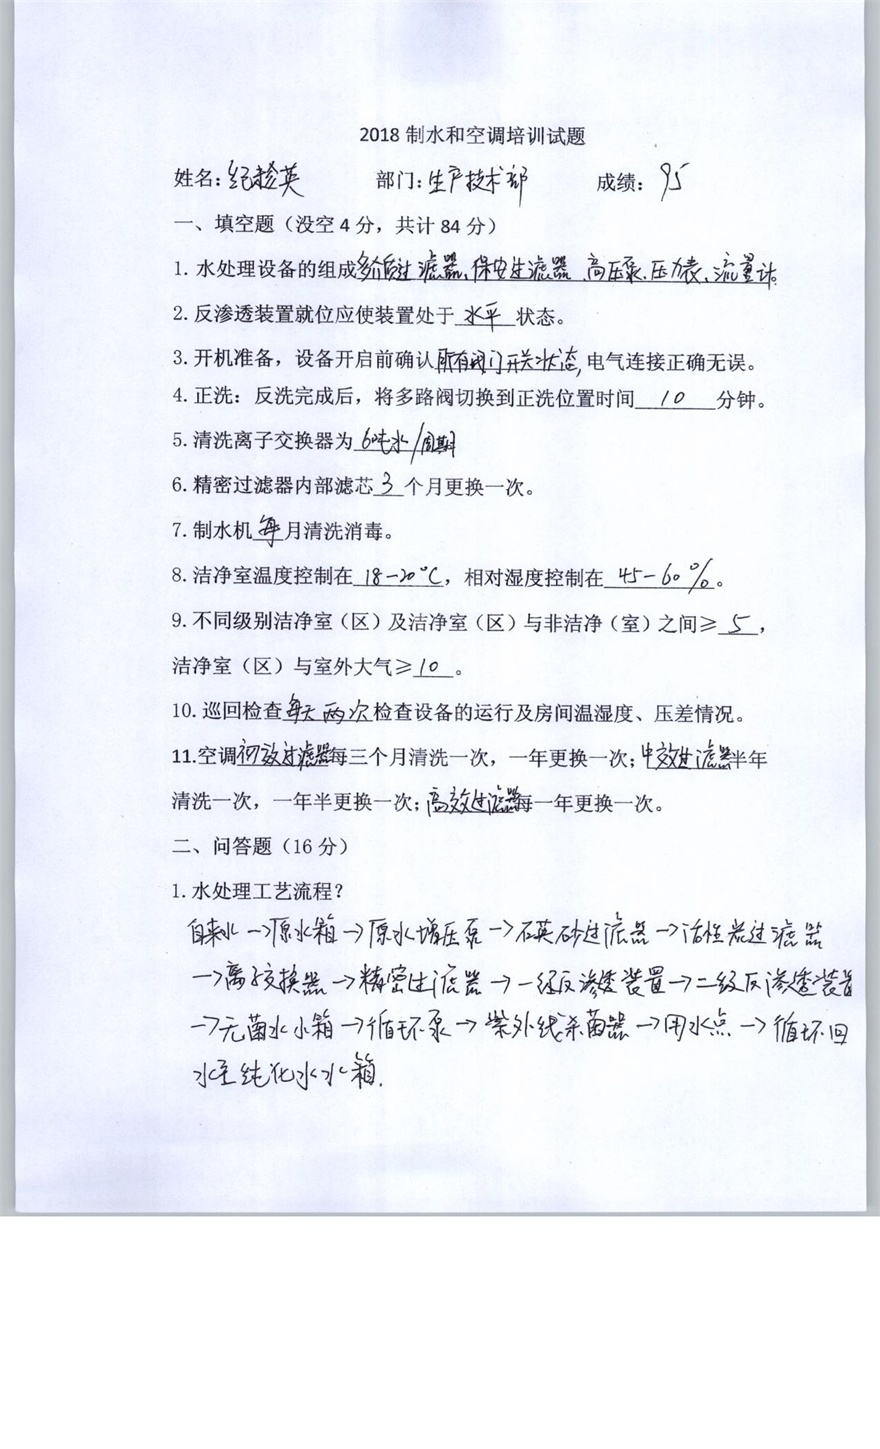 2018 制水和空调培训试题
姓名: 纪拴英 部门: 生产技术部 成绩: 95
一、填空题（没空 4 分，共计 84 分）
1. 水处理设备的组成多介质过滤器、保安过滤器、高压泵、压力表、流量计。
2. 反渗透装置就位应使装置处于 水平 状态。
3. 开机准备，设备开启前确认所有阀门开关状态, 电气连接正确无误。
4. 正洗：反洗完成后，将多路阀切换到正洗位置时间 10 分钟。
5. 清洗离子交换器为 6吨水/周期
6. 精密过滤器内部滤芯 3 个月更换一次。
7. 制水机 每 月清洗消毒。
8. 洁净室温度控制在 18-20℃，相对湿度控制在 45-60%。
9. 不同级别洁净室（区）及洁净室（区）与非洁净（室）之间≥ 5，
洁净室（区）与室外大气≥ 10。
10. 巡回检查 每天两次 检查设备的运行及房间温湿度、压差情况。
11.空调初效过滤器每三个月清洗一次，一年更换一次; 中效过滤器半年
清洗一次，一年半更换一次; 高效过滤器每一年更换一次。
二、问答题（16 分）
1. 水处理工艺流程？
自来水→原水箱→原水增压泵→石英砂过滤器→活性炭过滤器
→离子交换器→精密过滤器→一级反渗透装置→二级反渗透装置
→无菌水水箱→循环泵→紫外线杀菌器→用水点→循环回
水至纯化水水箱.